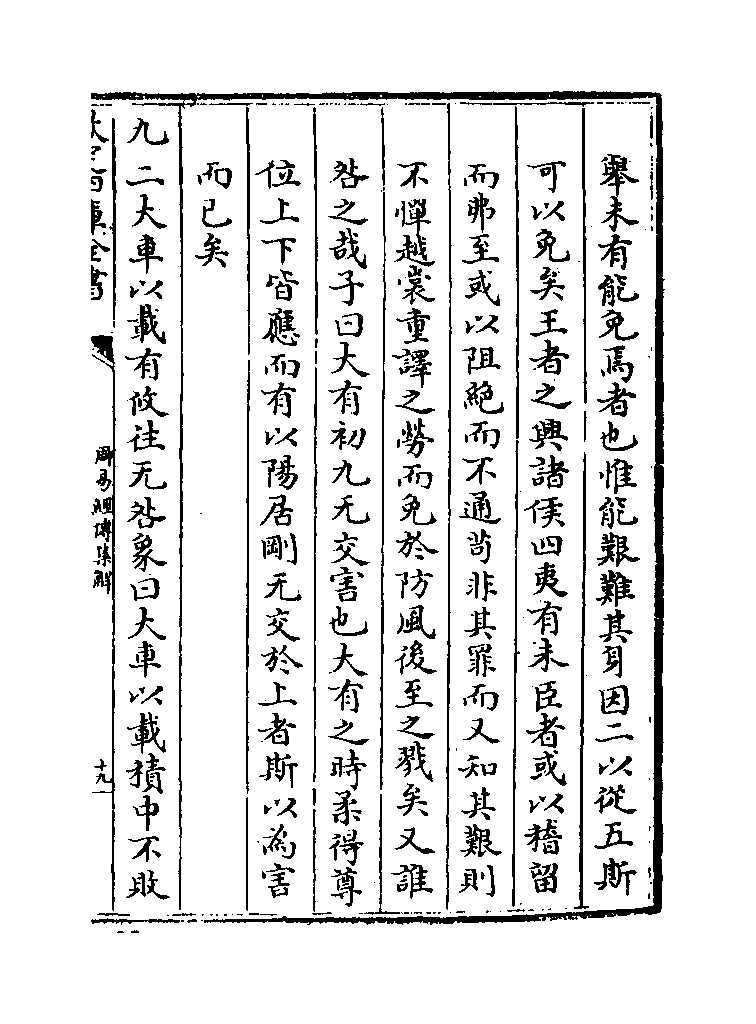 舉未有能免焉者也惟能艱難其身因二以從五斯
可以免矣王者之興諸侯四夷有未臣者或以稽留
而弗至或以阻絕而不通苟非其罪而又知其艱則
不憚越裳重譯之勞而免於防風後至之戮矣又誰
咎之哉子曰大有初九无交害也大有之時柔得尊
位上下皆應而有以陽居剛无交於上者斯以為害
而已矣
九二大車以載有攸往无咎象曰大車以載積中不敗
欽定四庫全書
周易經傳集解
十九